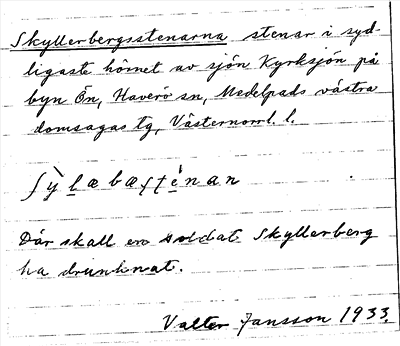 Skyllerbergsstenarna stenar i syd-
ligaste hörnet av sjön Kyrksjön på
byn Ön, Haverö sn, Medelpads västra
domsagas tg, Västernorrl. l.
ʃỳlæbæʃténan
Där skall en soldat Skyllerberg
ha drunknat.
Valter Jansson 1933.